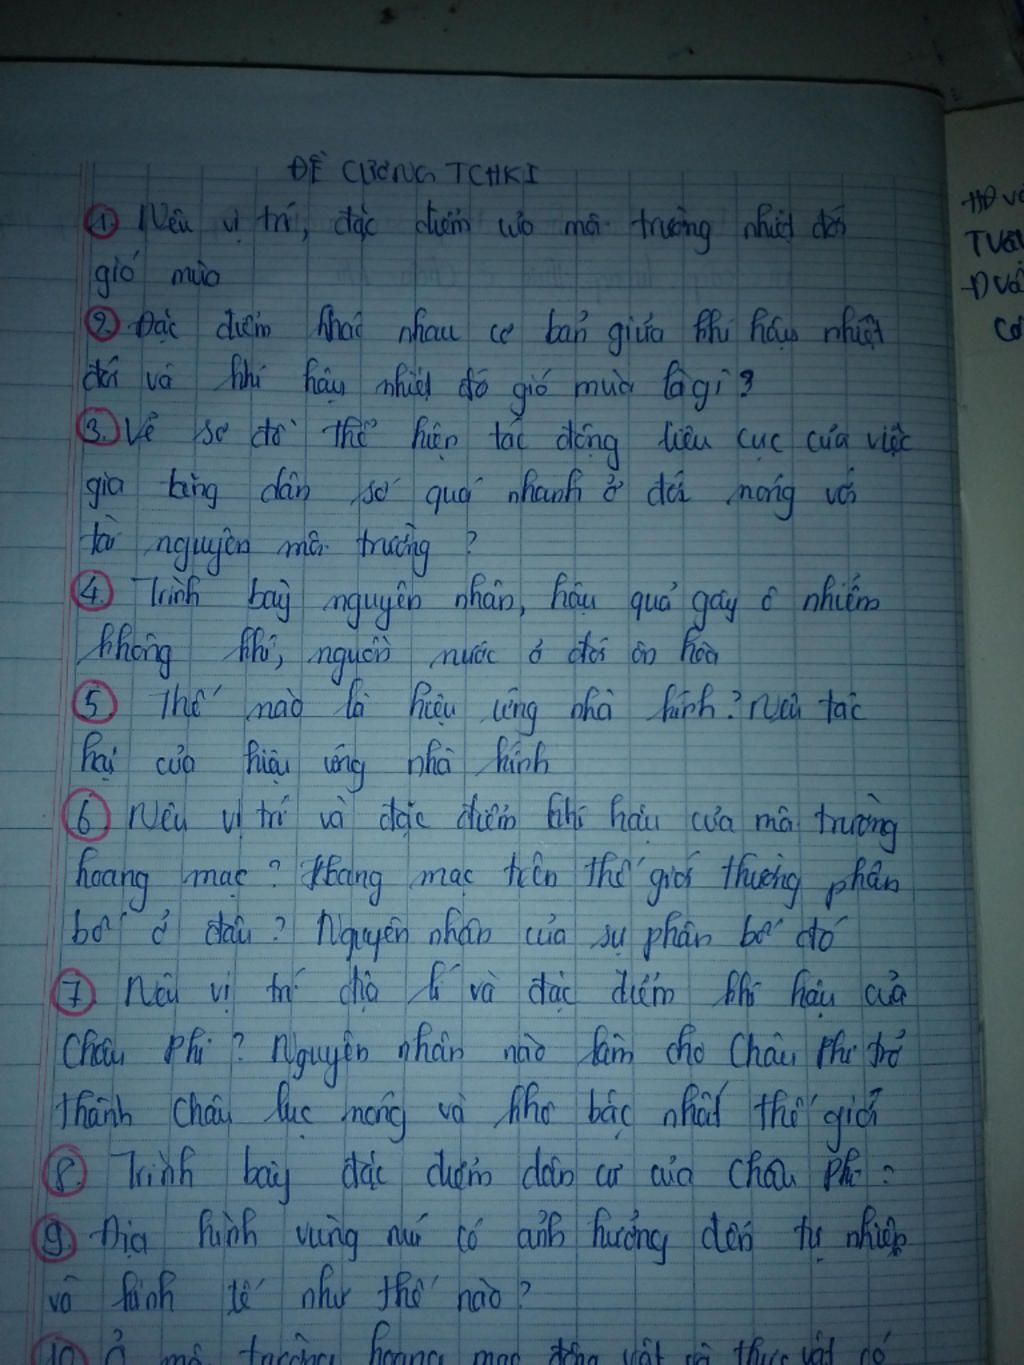 ĐỀ CƯƠNG TCHKI
① Nêu vị trí, đặc điểm của môi trường nhiệt đới
gió mùa
② Đặc điểm khác nhau cơ bản giữa khí hậu nhiệt
đới và khí hậu nhiệt đố gió mùa là gì?
③ Vẽ sơ đồ thể hiện tác động tiêu cực của việc
gia tăng dân số quá nhanh ở đới nóng với
tài nguyên môi trường?
④ Trình bày nguyên nhân, hậu quả gây ô nhiễm
không khí, nguồn nước ở đới ôn hòa
⑤ Thế nào là hiệu ứng nhà kính? Nêu tác
hại của hiệu ứng nhà kính
⑥ Nêu vị trí và đặc điểm khí hậu của môi trường
hoang mạc? Hoang mạc trên thế giới thường phân
bố ở đâu? Nguyên nhân của sự phân bố đó
⑦ Nêu vị trí địa lí và đặc điểm khí hậu của
Châu Phi? Nguyên nhân nào làm cho Châu Phi trở
thành châu lục nóng và khô bậc nhất thế giới
⑧ Trình bày đặc điểm dân cư của châu Phi?
⑨ Địa hình vùng núi có ảnh hưởng đến tự nhiên
và kinh tế như thế nào?
⑩ Ở môi trường hoang mạc động vật và thực vật có